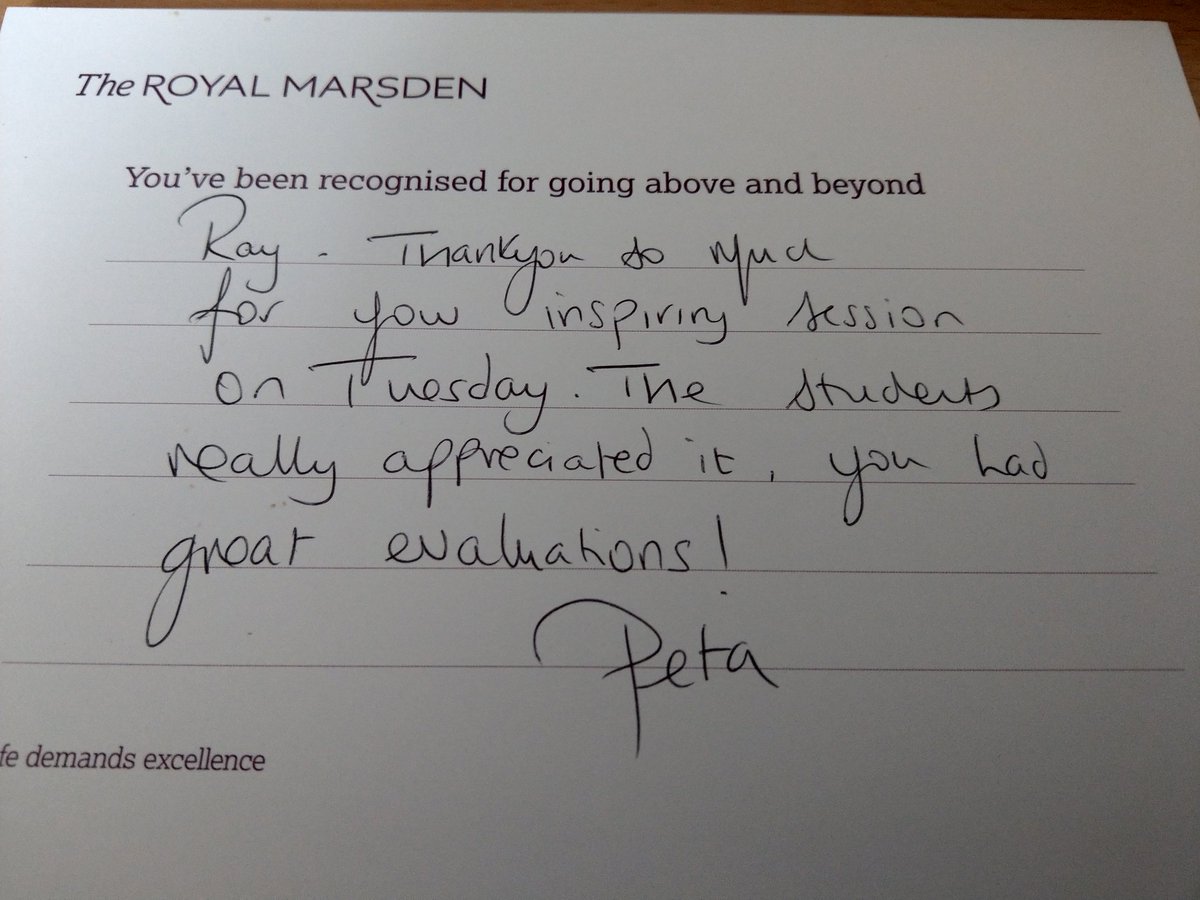 The ROYAL MARSDEN
You've been recognised for going above and beyond
Ray - Thankyou so much
for your inspiring session
on Tuesday. The students
really appreciated it, you had
great evaluations!
Peta
fe demands excellence